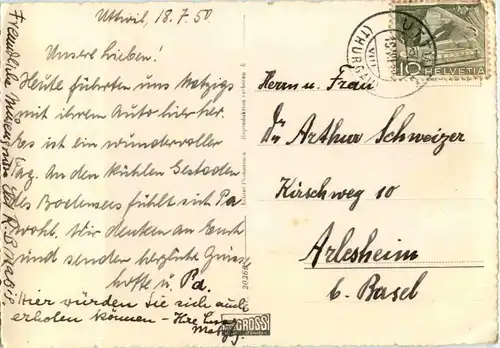 Uttwil, 18.7.50
Unsere Lieben!
Heute führten uns Metzigs
mit ihrem Auto hierher.
Es ist ein wundervoller
Tag. An den kühlen Gestaden
des Bodensees fühlt sich Pa
wohl. Wir denken an Euch
und senden herzliche Grüsse
u. Pa.
Hier würden Sie sich auch
erholen können - Ihre
Freundliche
Herrn u. Frau
Dr Arthur Schweizer
Kirschweg 10
Arlesheim
b. Basel
10
HELVETIA
(THURGAU)
Reproduktion verboten
20366
GROSS